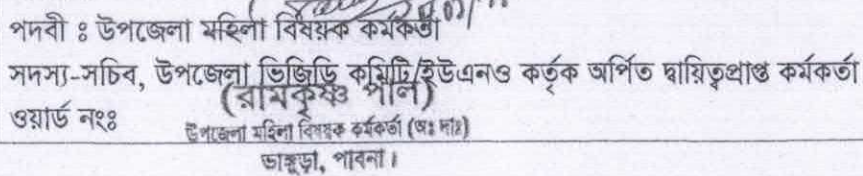 পদবী ঃ উপজেলা মহিলা বিষয়ক কর্মকর্তা
সদস্য-সচিব, উপজেলা ভিজিডি কমিটি/ইউএনও কর্তৃক অর্পিত দায়িত্বপ্রাপ্ত কর্মকর্তা
(রামকৃষ্ণ পাল)
ওয়ার্ড নংঃ
উপজেলা মহিলা বিষয়ক কর্মকর্তা (অঃ দাঃ)
ভাঙ্গুড়া, পাবনা।